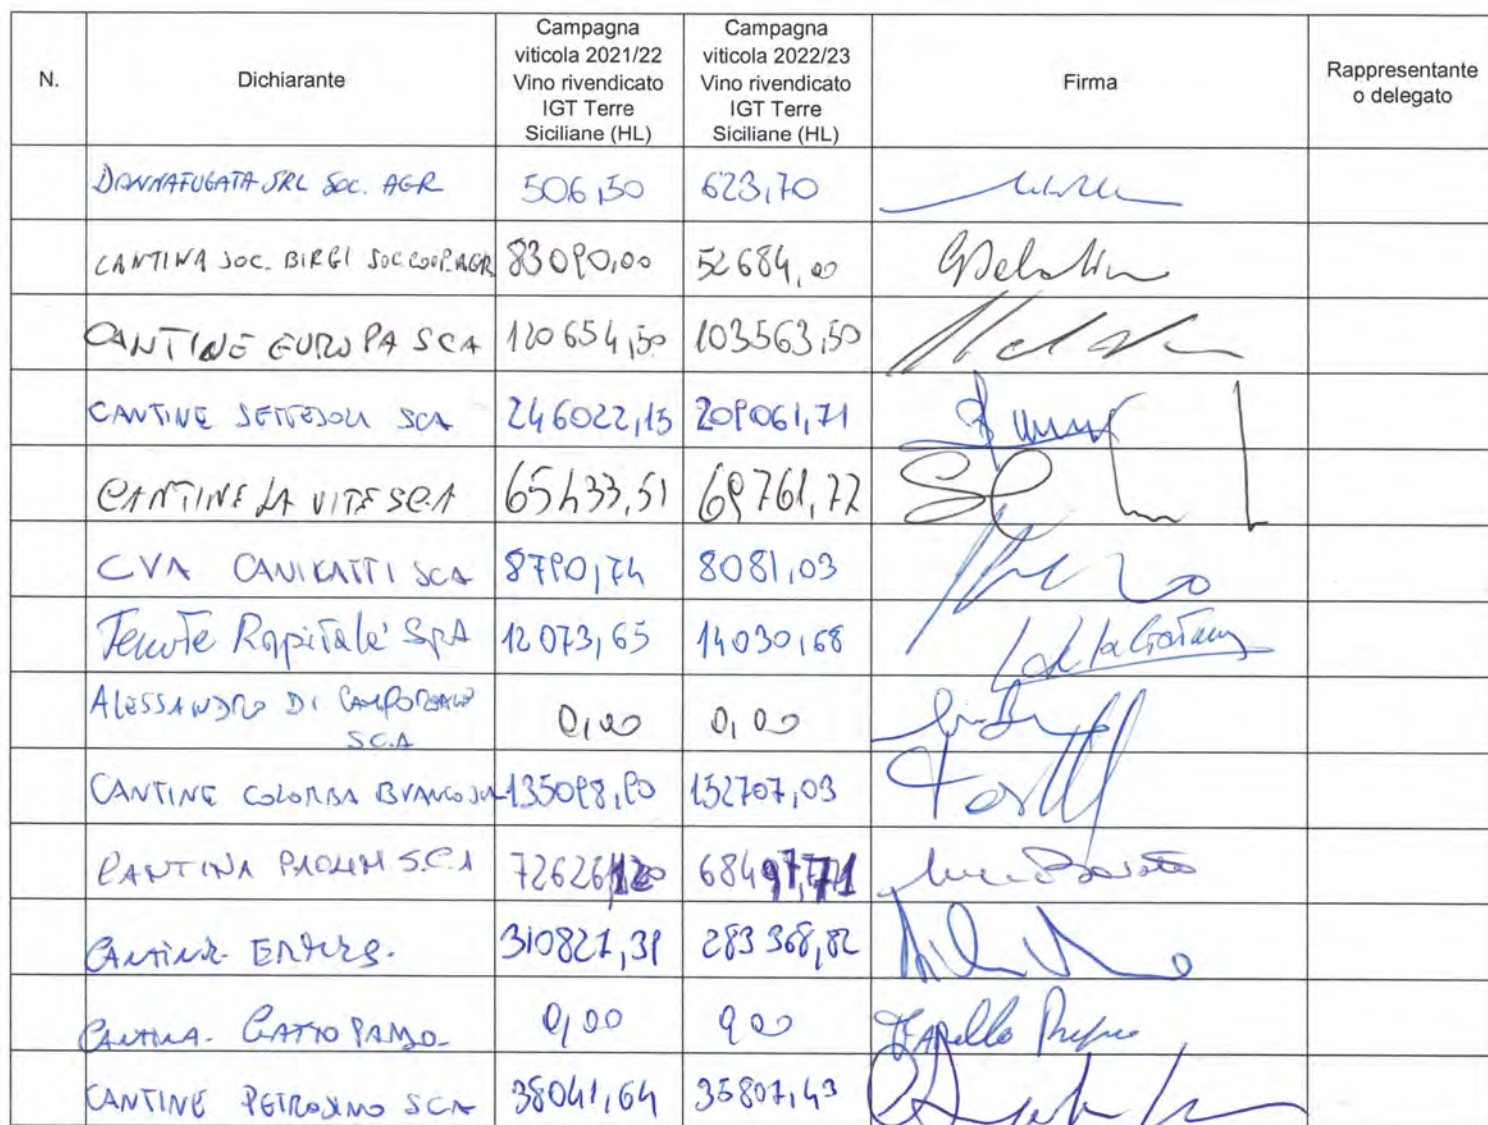 N. Dichiarante Campagna viticola 2021/22 Vino rivendicato IGT Terre Siciliane (HL) Campagna viticola 2022/23 Vino rivendicato IGT Terre Siciliane (HL) Firma Rappresentante o delegato
DONNAFUGATA SRL SOC. AGR 506,50 623,70
CANTINA SOC. BIRGI SOC COOP. AGR 83090,00 52684,00
CANTINE EUROPA SCA 120654,50 103563,50
CANTINE SETTESOLI SCA 246022,15 209061,71
CANTINE LA VITE SCA 65433,51 69761,72
CVA CANICATTI SCA 8790,74 8081,03
Tenute Rapitalè SpA 12073,65 14030,68
ALESSANDRO DI CAMPOREALE
SCA 0,00 0,00
CANTINE COLOMBA BIANCA 135098,90 152707,03
CANTINA PAOLINI S.C.A 72626
CANTINE ERMES. 310821,31 283368,82
CANTINA GATTOPARDO 0,00 0,00
CANTINE PETROSINO SCA 38041,64 35807,43